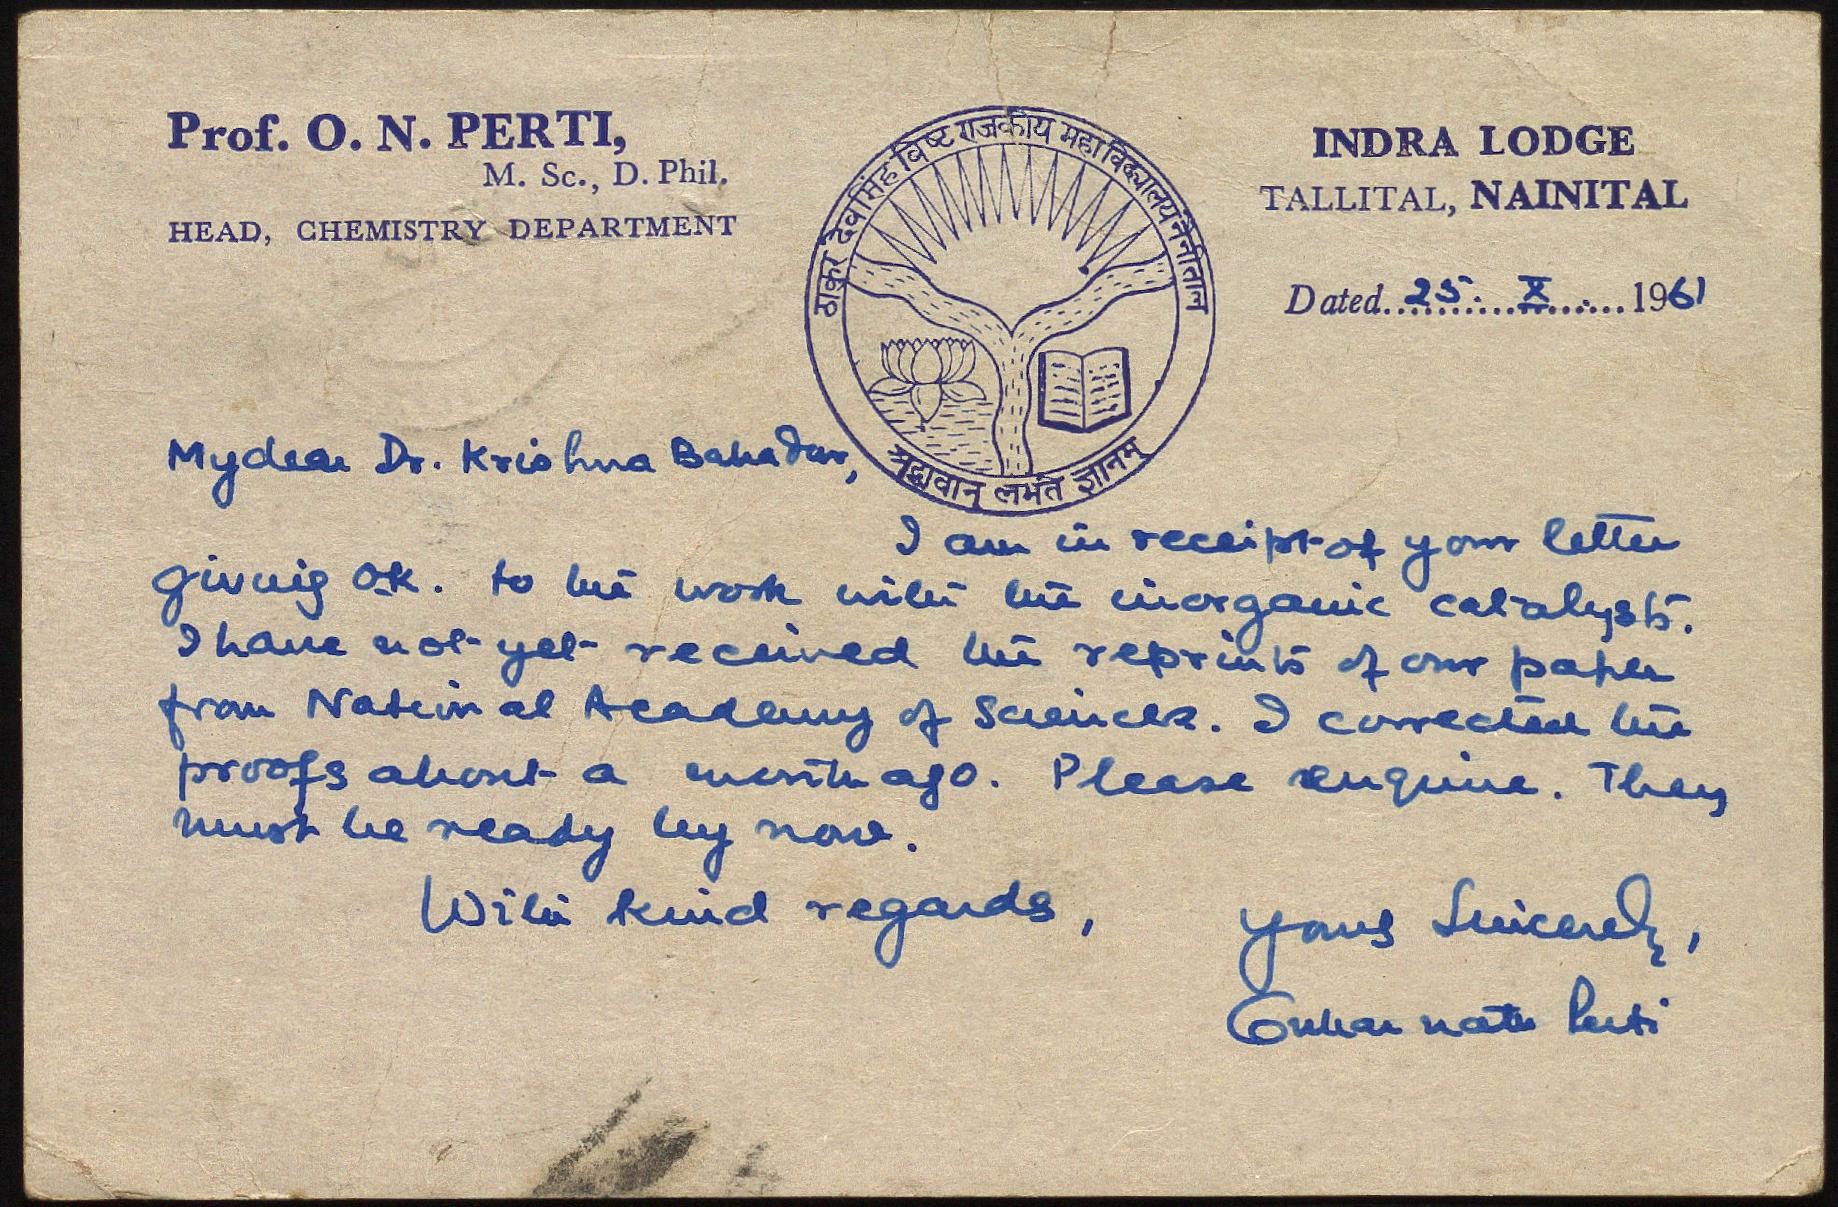 Prof. O. N. PERTI,
M. Sc., D. Phil.
HEAD, CHEMISTRY DEPARTMENT
ठाकुर देवसिंह विष्ट राजकीय महाविद्यालय नैनीताल
श्रद्धावान् लभते ज्ञानम्
INDRA LODGE
TALLITAL, NAINITAL
Dated 25. X. 1961
My dear Dr. Krishna Bahadur,
I am in receipt of your letter
giving OK. to the work with the inorganic catalysts.
I have not yet received the reprints of our paper
from National Academy of Sciences. I corrected the
proofs about a month ago. Please enquire. They
must be ready by now.
With kind regards,
Yours Sincerely,
Onkar nath Perti